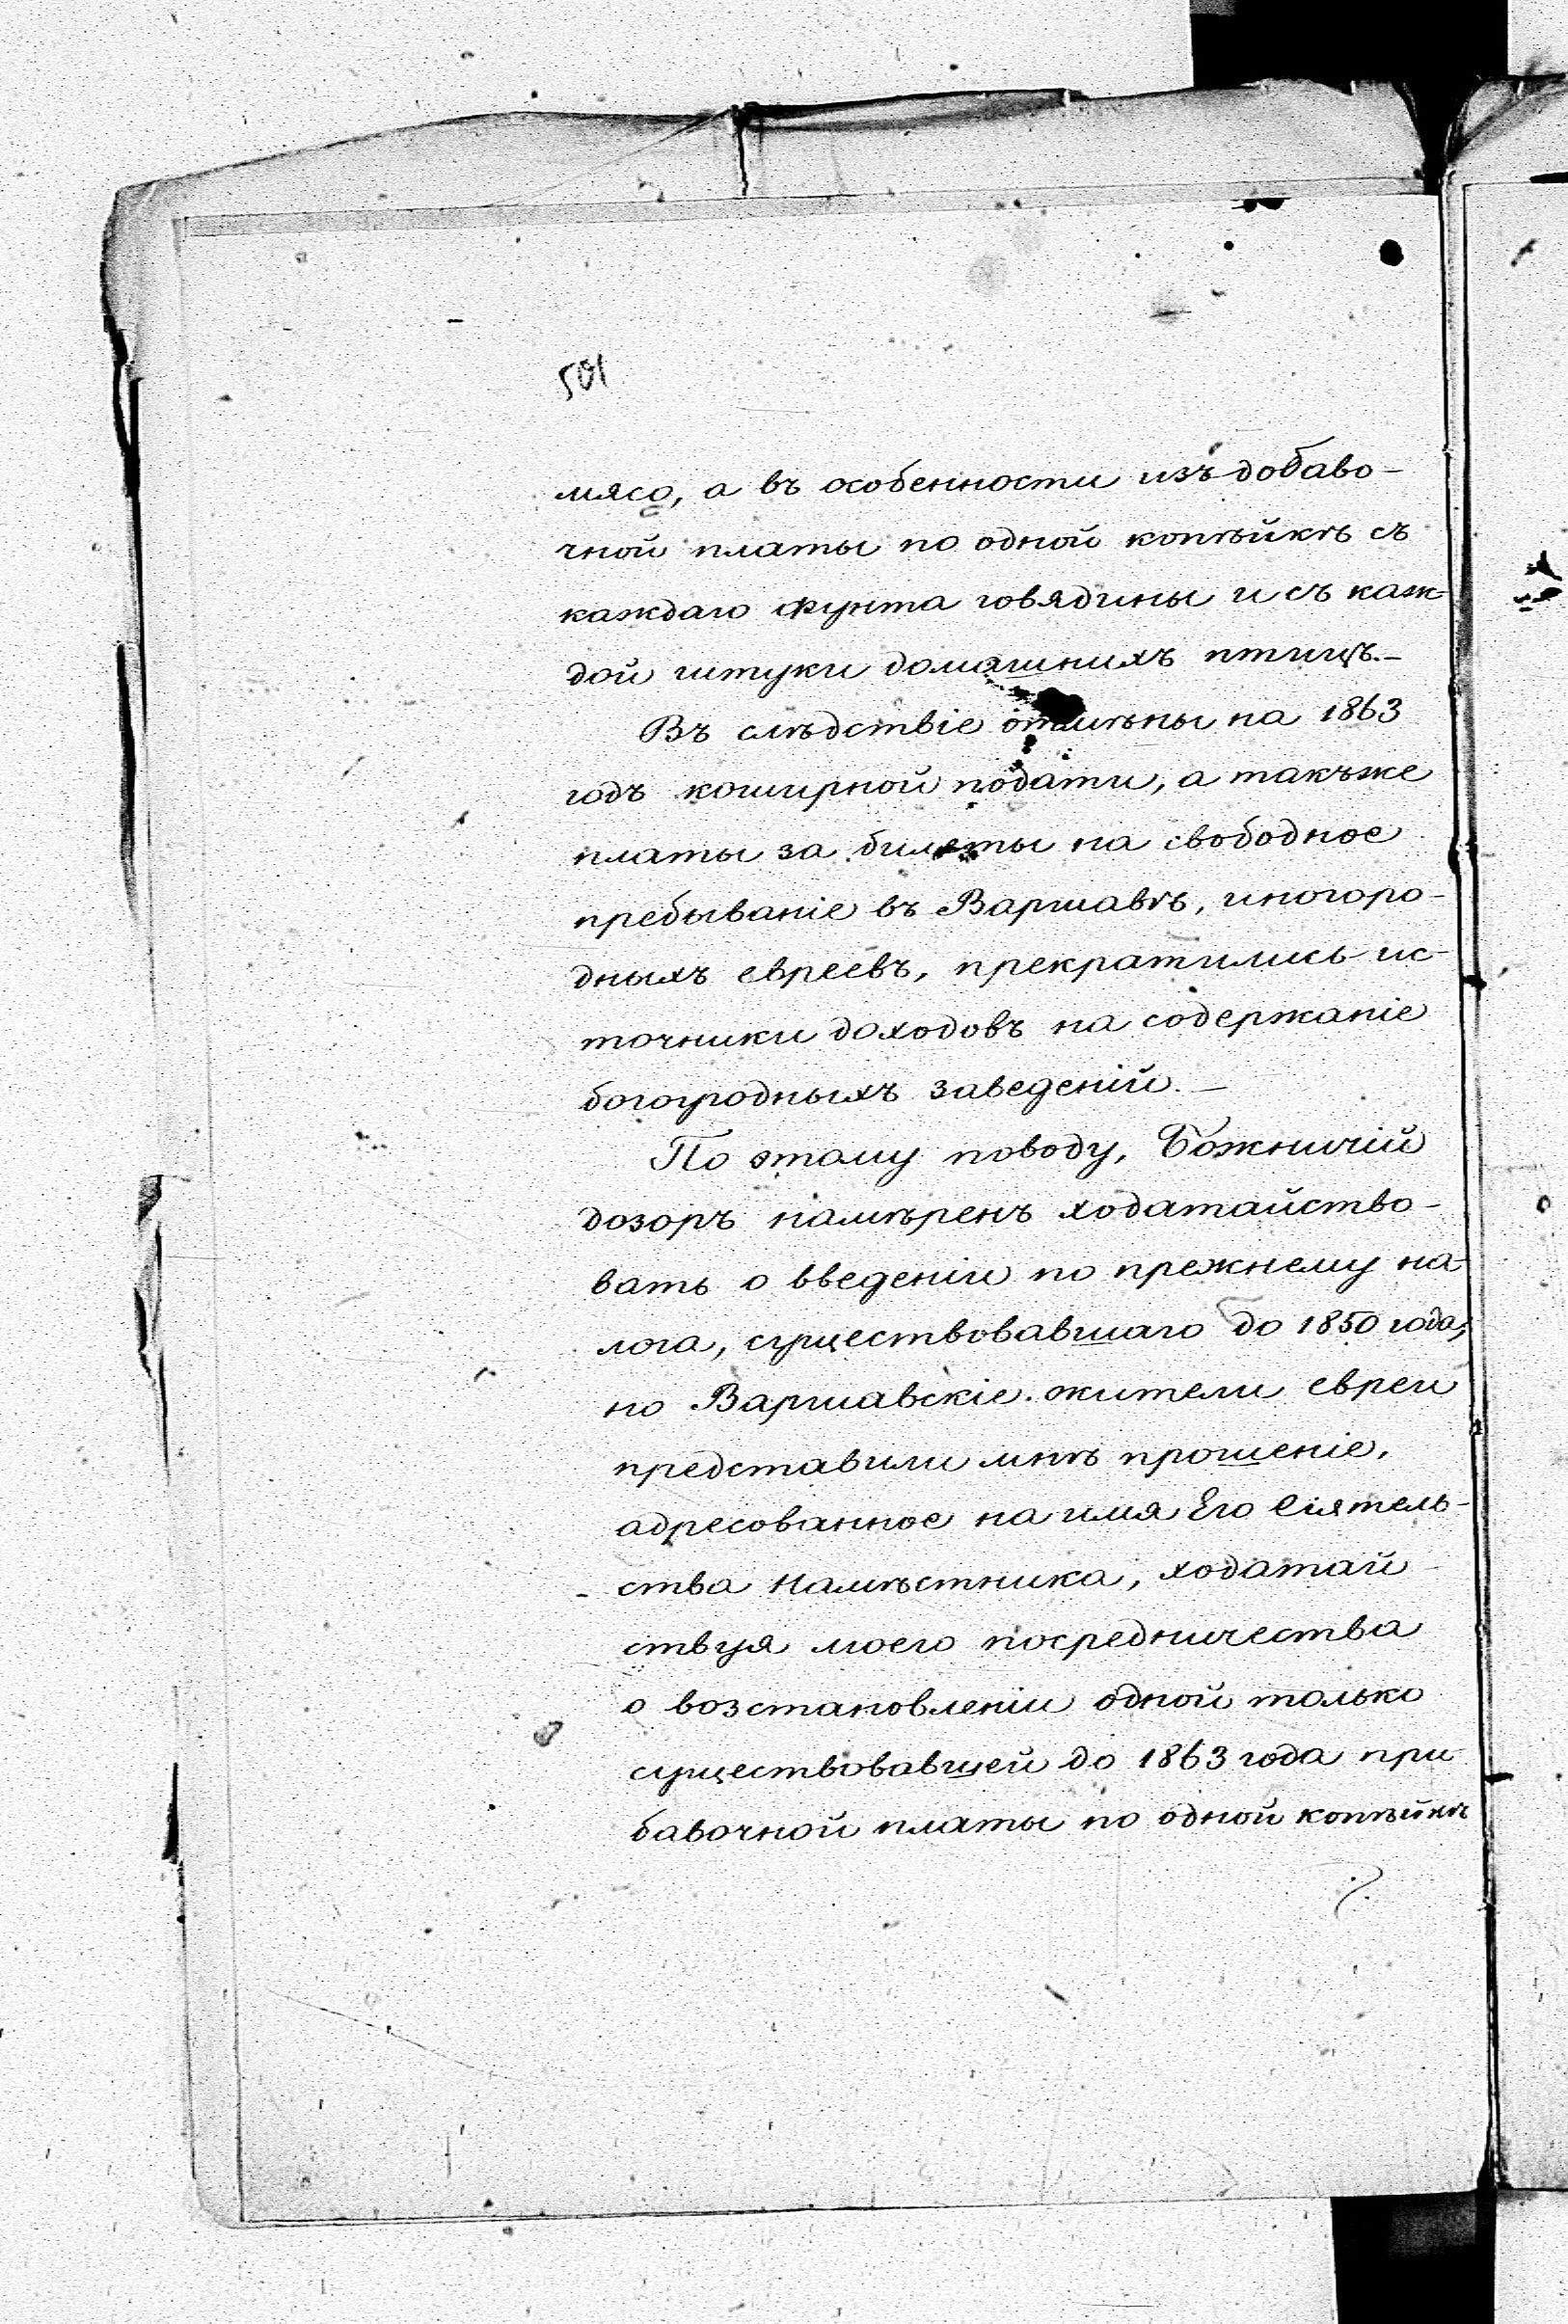 501
мясо, а въ особенности изъ добаво-
чной платы по одной копѣйкѣ съ
каждаго фунта говядины и съ каж-
дой штуки домашнихъ птицъ.—
Въ слѣдствіе отмѣны на 1863
годъ коширной подати, а такъже
платы за билеты на свободное
пребываніе въ Варшавѣ, иногоро-
дныхъ евреевъ, прекратились ис-
точники доходовъ на содержаніе
богоугодныхъ заведеній.—
По этому поводу, Божничій
дозоръ намѣренъ ходатайство-
вать о введеніи по прежнему на-
лога, существовавшаго до 1850 года,
но Варшавскіе жители евреи
представили мнѣ прошеніе,
адресованное на имя Его Сіятель-
ства Намѣстника, ходатай-
ствуя моего посредничества
о возстановленіи одной только
существовавшей до 1863 года при-
бавочной платы по одной копѣйкѣ